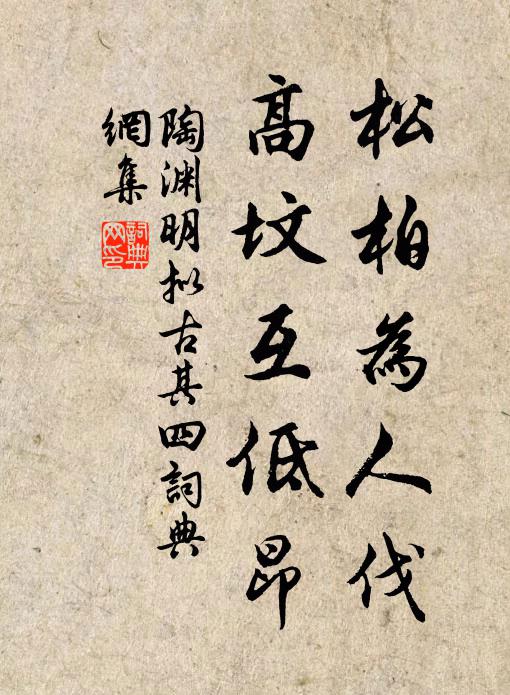 松柏為人伐
高坟互低昂
陶渊明拟古其四詞典
網集
詞典
网印